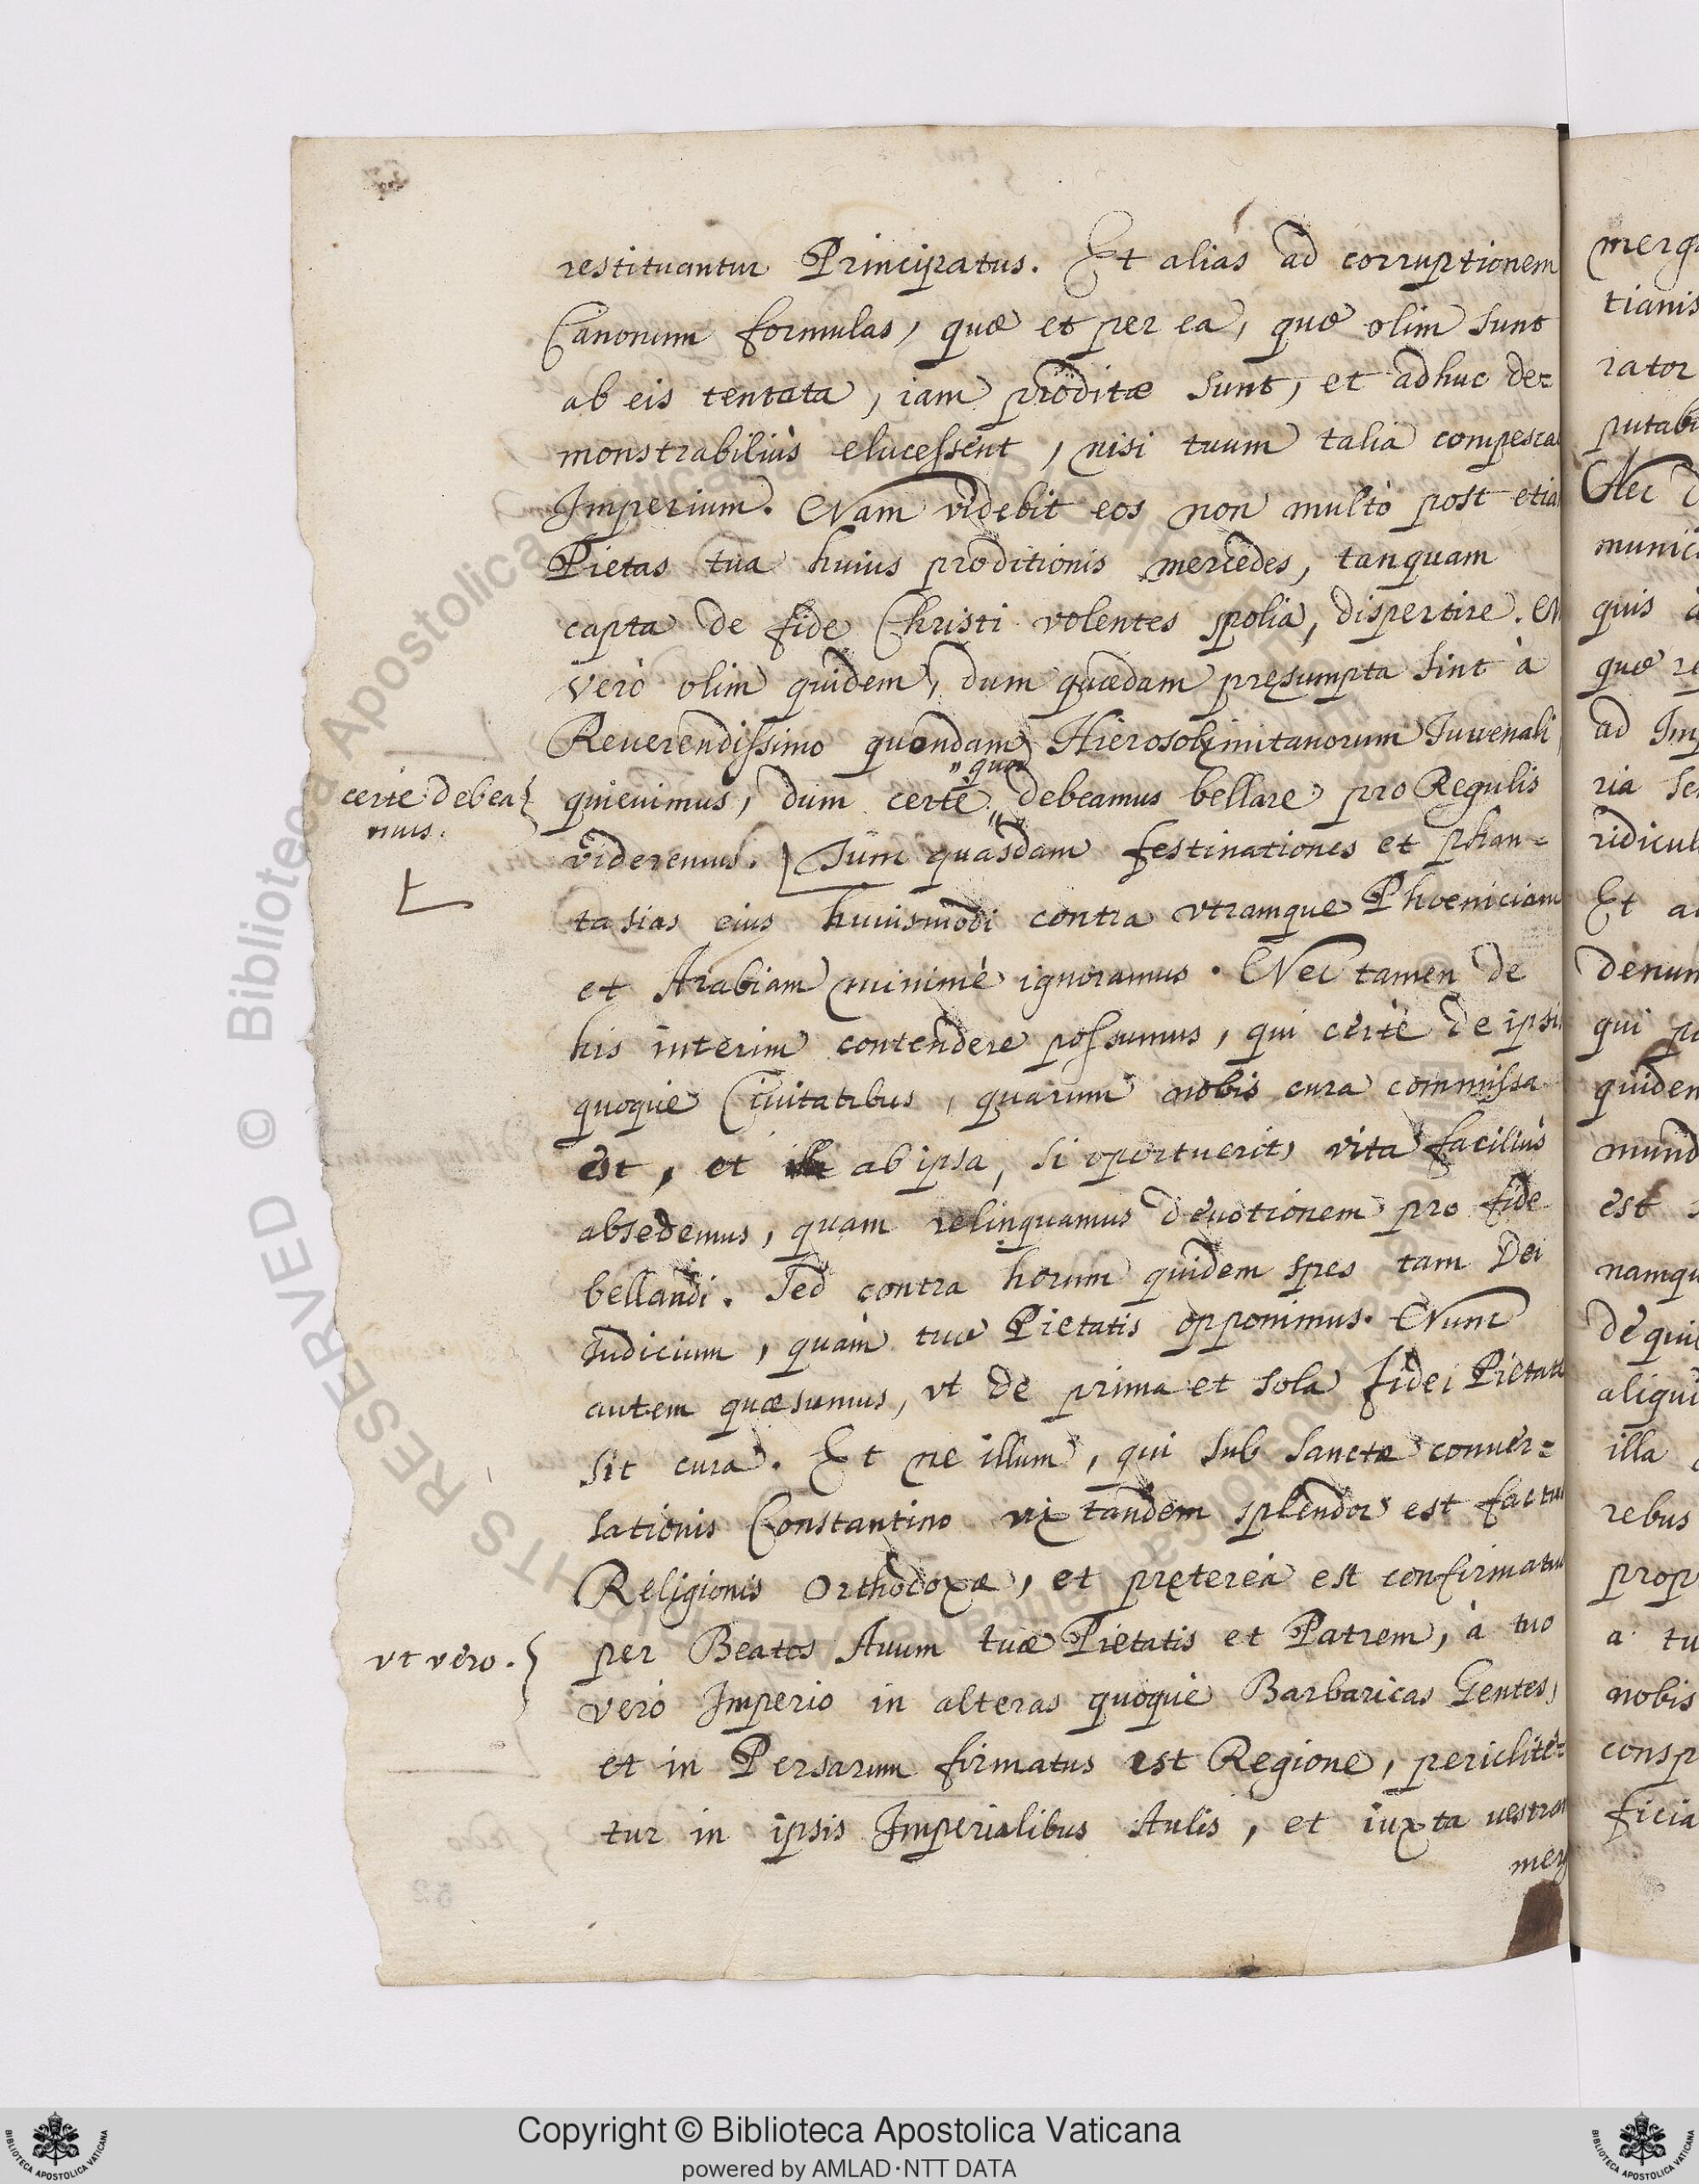 restituantur Principatus. Et aliàs ad corruptionem
Canonum formulas, quæ et per ea, quæ olim sunt
ab eis tentata, iam proditæ sunt, et adhuc de=
monstrabiliùs elucessent, nisi tuum talia compesca
Imperium. Nam videbit eos non multò post etia
Pietas tua huius proditionis mercedes, tanquam
capta de fide Christi volentes spolia, dispertire. N
verò olim quidem, dum quædam pręsumpta sint à
Reuerendissimo quondam Hierosolymitanorum Iuuenali
certè debea
mus.
quieuimus, dum certè „quæ„ debeamus bellare pro Regulis
videremus. [Tum quasdam festinationes et phan=
tasias eius huiusmodi contra vtramque Phœniciam
et Arabiam minimè ignoramus. Nec tamen de
his interim contendere possumus, qui certè de ipsi
quoque Ciuitatibus, quarum nobis cura commissa
est, et ab ipsa, si oportuerit, vita faciliùs
absedemus, quam relinquamus deuotionem pro fide
bellandi. Sed contra horum quidem spes tam Dei
Iudicium, quàm tuæ Pietatis opponimus. Nunc
autem quæsumus, vt de prima et sola fidei Pietate
sit cura. Et ne illum, qui sub sanctæ conuer=
sationis Constantino vix tandem splendor est factu
Religionis Orthodoxæ, et pręterea est confirmatu
vt vero.
per Beatos Auum tuæ Pietatis et Patrem, à tuo
verò Imperio in alteras quoque Barbaricas Gentes,
et in Persarum firmatus est Regione, periclite=
tur in ipsis Imperialibus Aulis, et iuxta vestram
merg
merg
tianis
rator
putab
Nec d
munic
quis
quæ re
ad Imp
ria se
ridicul
Et a
denun
qui po
quiden
mund
est
namqu
de qui
aliqui
illa
rebus
prop
a tu
nobis
consp
ficia
52
© Biblioteca Apostolica Vaticana
Copyright © Biblioteca Apostolica Vaticana
powered by AMLAD·NTT DATA
BIBLIOTECA APOSTOLICA VATICANA
BIBLIOTECA APOSTOLICA VATICANA